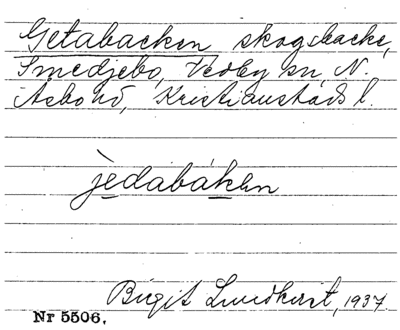 Getabacken skogsbacke,
Smedjebo, Vedby sn, N.
Åsbo hd, Kristianstads l.
jèdabákən
Birgit Lundkvist, 1937.
Nr 5506.